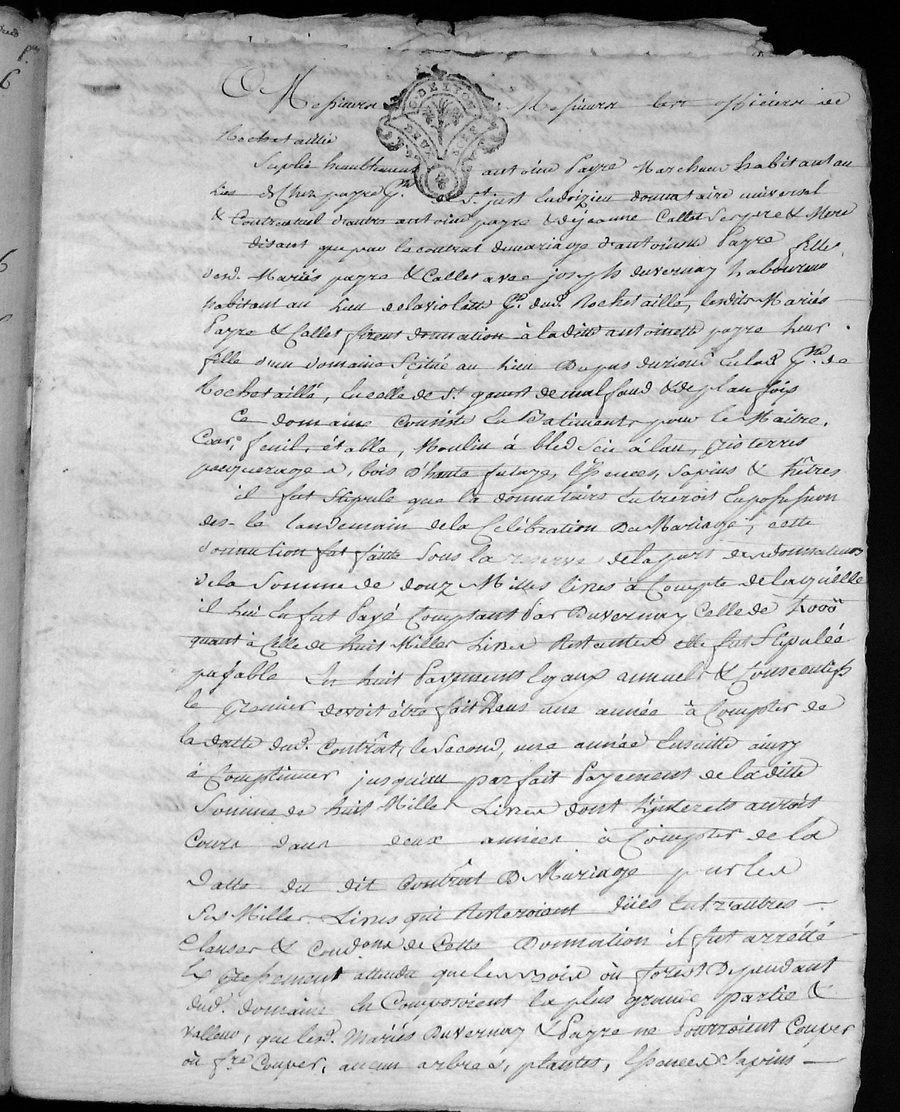 A Messieurs Messieurs les officiers de
Rochetaillée
Suplie humblement antoine Payre Marchand habitant au
Lieu de Chez payre St. just donnataire universel
& Contractuel d'autre antoine payre & de jeanne Callet Ses pere & Mere
disant que par le contrat de mariage d'antoinette Payre fille
desd. Mariés payre & Callet avec joseph duvernay laboureur
habitant au Lieu de laviolatte psse. dud. Rochetaillé, lesdits Mariés
Payre & Callet firent donnation à la ditte antoinette payre leur
fille d'un domaine Scitué au Lieu Du pas du en lad. psse. de
Rochetaillé, en celle de St. genest de malfaud & de planfois
Ce domaine Consiste en Batiments pour le Maitre,
fenil, étable, Moulin à bled Scie à eau, terres
pasquerages, bois D'haute futaye, Essences, Sapins & hêtres
il fut Stipulé que la donnataire Entreroit En possession
dès le landemain de la Célébration Du Mariage, cette
donnation fut faitte Sous la reserve de la part des donnateurs
de la Somme de douze Milles livres à Compte de laquelle
il Lui En fut Payé Comptant Par Duvernay Celle de 4000
quant à Celle de huit Milles Livres Restantes elle fut Stipulée
payable En huit Payements Egaux annuels & Consecutifs
le premier devoit être fait Dans une année à Compter de
la datte dud. Contrat, le Second, une année Ensuitte ainsy
à Comptinuer jusqu'au parfait Payement de la ditte
Somme de huit Milles Livres dont L'interets auroit
Cours dans deux années à Compter de la
Datte du dit Contrat De Mariage pour les
Six Milles Livres qui Resteroient dües Entr'autres
Clauses & Condons de Cette Donnation il fut arrétté
Expressement attendu que les bois où forest Dependant
dud. domaine En Composoient la plus grande partie &
valleur, que lesd. Mariés Duvernay & Payre ne Pourroient Couper
où fre Couper, aucun arbres, plantes, Essences Sapins